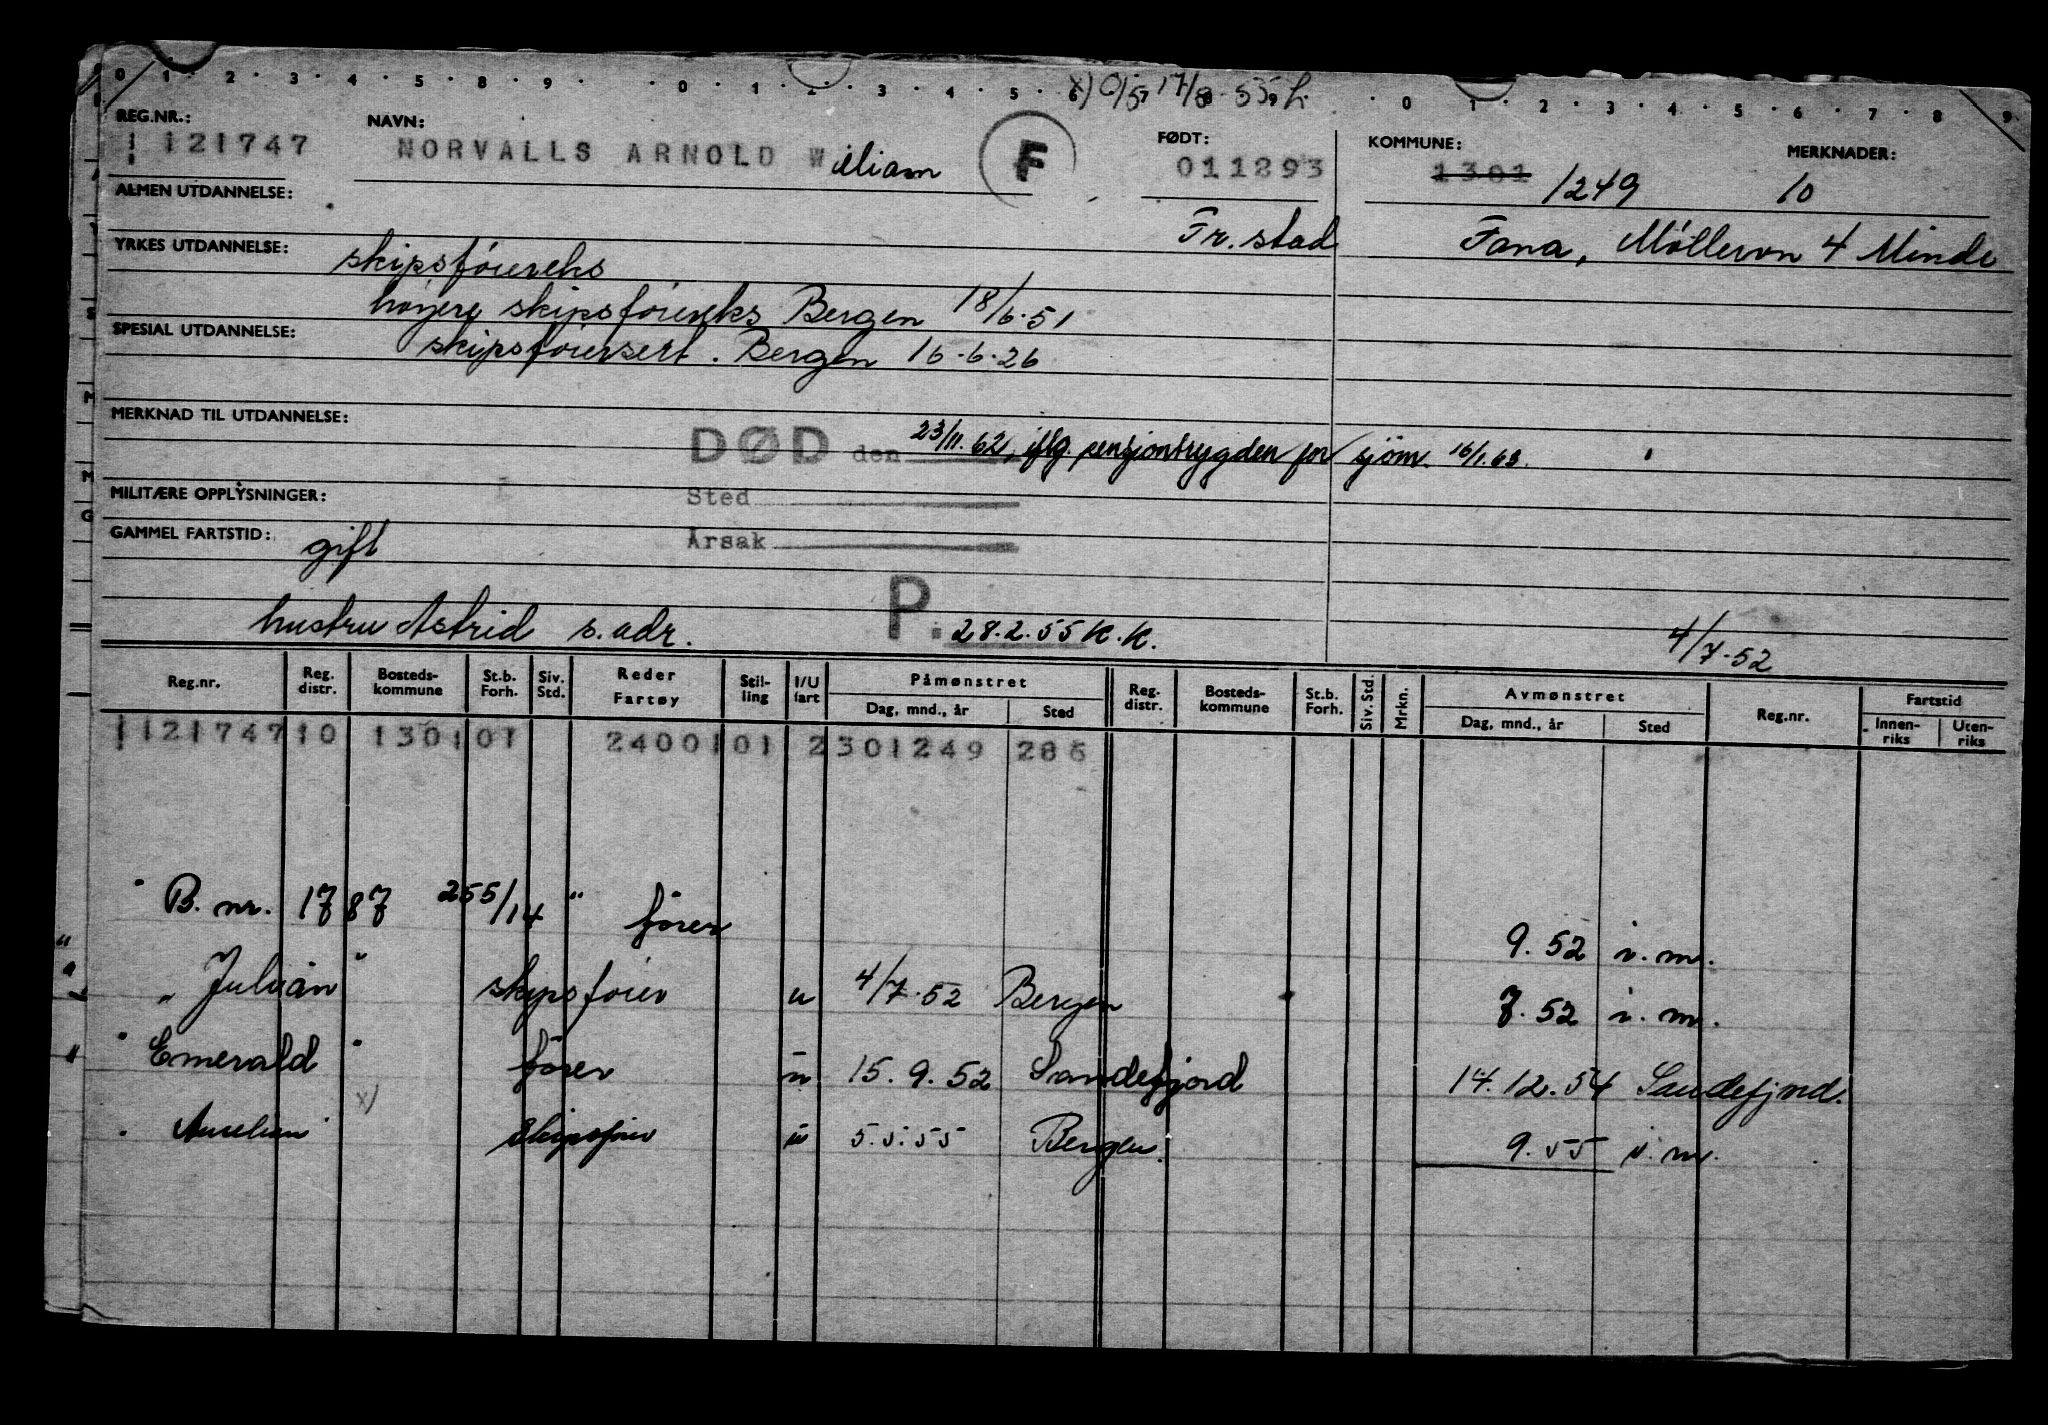 0 · 1 · 2 · 3 · 4 · 5 · 8 · 9 · · 0 · 1 · 2 · 3 · 4 · 5 · 6 x) 17/8 55 · 0 · 1 · 2 · 3 · 4 · 5 · 6 · 7 · 8 · 9
REG.NR.: NAVN: FØDT: KOMMUNE: MERKNADER:
121747 NORVALLS ARNOLD William F 011293 1301 1249 10
ALMEN UTDANNELSE: Fr.stad Fana, Møllervn 4 Minde
YRKES UTDANNELSE: skipsføiereks
høyere skipsføiereks Bergen 18/6.51
SPESIAL UTDANNELSE: skipsføiersert. Bergen 16.6.26
MERKNAD TIL UTDANNELSE:
DØD den 23/11.62, iflg. pensjontrygden for sjøm. 16/1.63.
MILITÆRE OPPLYSNINGER: Sted
GAMMEL FARTSTID: gift Årsak
hustru Astrid s. adr. P. 28.2.55 K.K. 4/7.52
Reg.nr. Reg. distr. Bosteds-kommune St.b. Forh. Siv. Std. Reder Fartøy Stil-ling I/U fart Påmønstret Reg. distr. Bosteds-kommune St.b. Forh. Siv. Std. Mrkn. Avmønstret Reg.nr. Fartstid
Dag, mnd., år Sted Dag, mnd., år Sted Innen-riks Uten-riks
112174710 130101 2400101 2301249 286
" B. nr. 1787 255/14 " fører 9.52 i.m.
" Julian " skipsføier u 4/7.52 Bergen 7.52 i.m.
" Emerald " fører u 15.9.52 Sandefjord 14.12.54 Sandefjord.
x)
Aurelian skipsføier u 5.5.55 Bergen. 9.55 i.m.